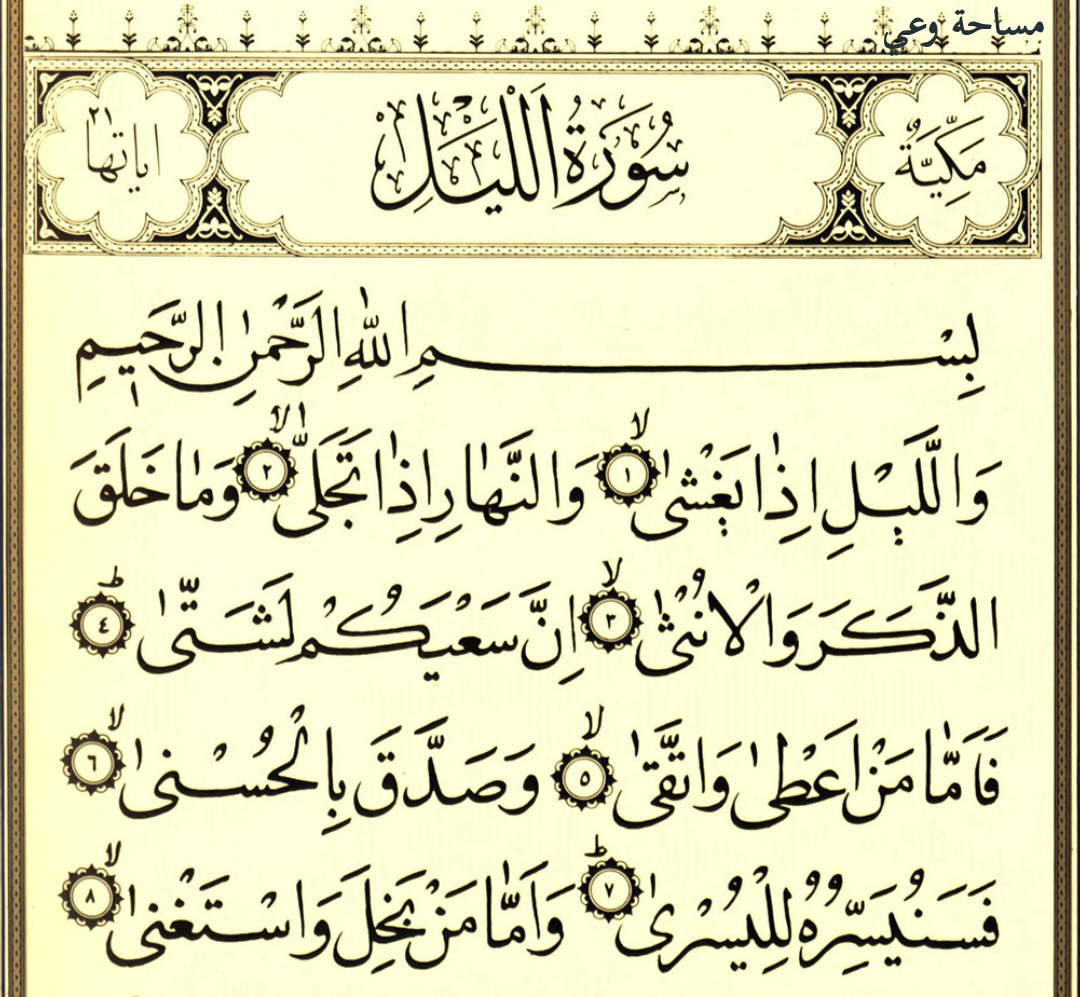 مساحة وعي
مَكِّيَّةٌ سُورَةُ اللَّيْلِ اياتها ٢١
بِسْمِ اللهِ الرَّحْمٰنِ الرَّحِيمِ
وَالَّيْلِ اِذَا يَغْشٰى ۙ ١ وَالنَّهَارِ اِذَا تَجَلّٰى ۙ ٢ وَمَا خَلَقَ
الذَّكَرَ وَالْاُنْثٰى ۙ ٣ اِنَّ سَعْيَكُمْ لَشَتّٰى ؕ ٤
فَاَمَّا مَنْ اَعْطٰى وَاتَّقٰى ۙ ٥ وَصَدَّقَ بِالْحُسْنٰى ۙ ٦
فَسَنُيَسِّرُهُ لِلْيُسْرٰى ؕ ٧ وَاَمَّا مَنْ بَخِلَ وَاسْتَغْنٰى ۙ ٨